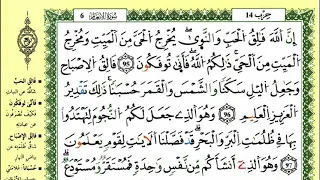 حزب 14
سورة الأنعام 6
إِنَّ اللَّهَ فَالِقُ الْحَبِّ وَالنَّوَى يُخْرِجُ الْحَيَّ مِنَ الْمَيِّتِ وَمُخْرِجُ
الْمَيِّتِ مِنَ الْحَيِّ ذَلِكُمُ اللَّهُ فَأَنَّى تُوفَكُونَ 95 فَالِقُ الْإِصْبَاحِ
وَجَعَلَ اللَّيْلَ سَكَنًا وَالشَّمْسَ وَالْقَمَرَ حُسْبَانًا ذَلِكَ تَقْدِيرُ
الْعَزِيزِ الْعَلِيمِ 96 وَهُوَ الَّذِي جَعَلَ لَكُمُ النُّجُومَ لِتَهْتَدُوا
بِهَا فِي ظُلُمَاتِ الْبَرِّ وَالْبَحْرِ قَدْ فَصَّلْنَا الْآيَاتِ لِقَوْمٍ يَعْلَمُونَ
97 وَهُوَ الَّذِي أَنْشَأَكُمْ مِنْ نَفْسٍ وَاحِدَةٍ فَمُسْتَقَرٌّ وَمُسْتَوْدَعٌ
فالق الحب
فأنى توفكون
فالق الإصباح